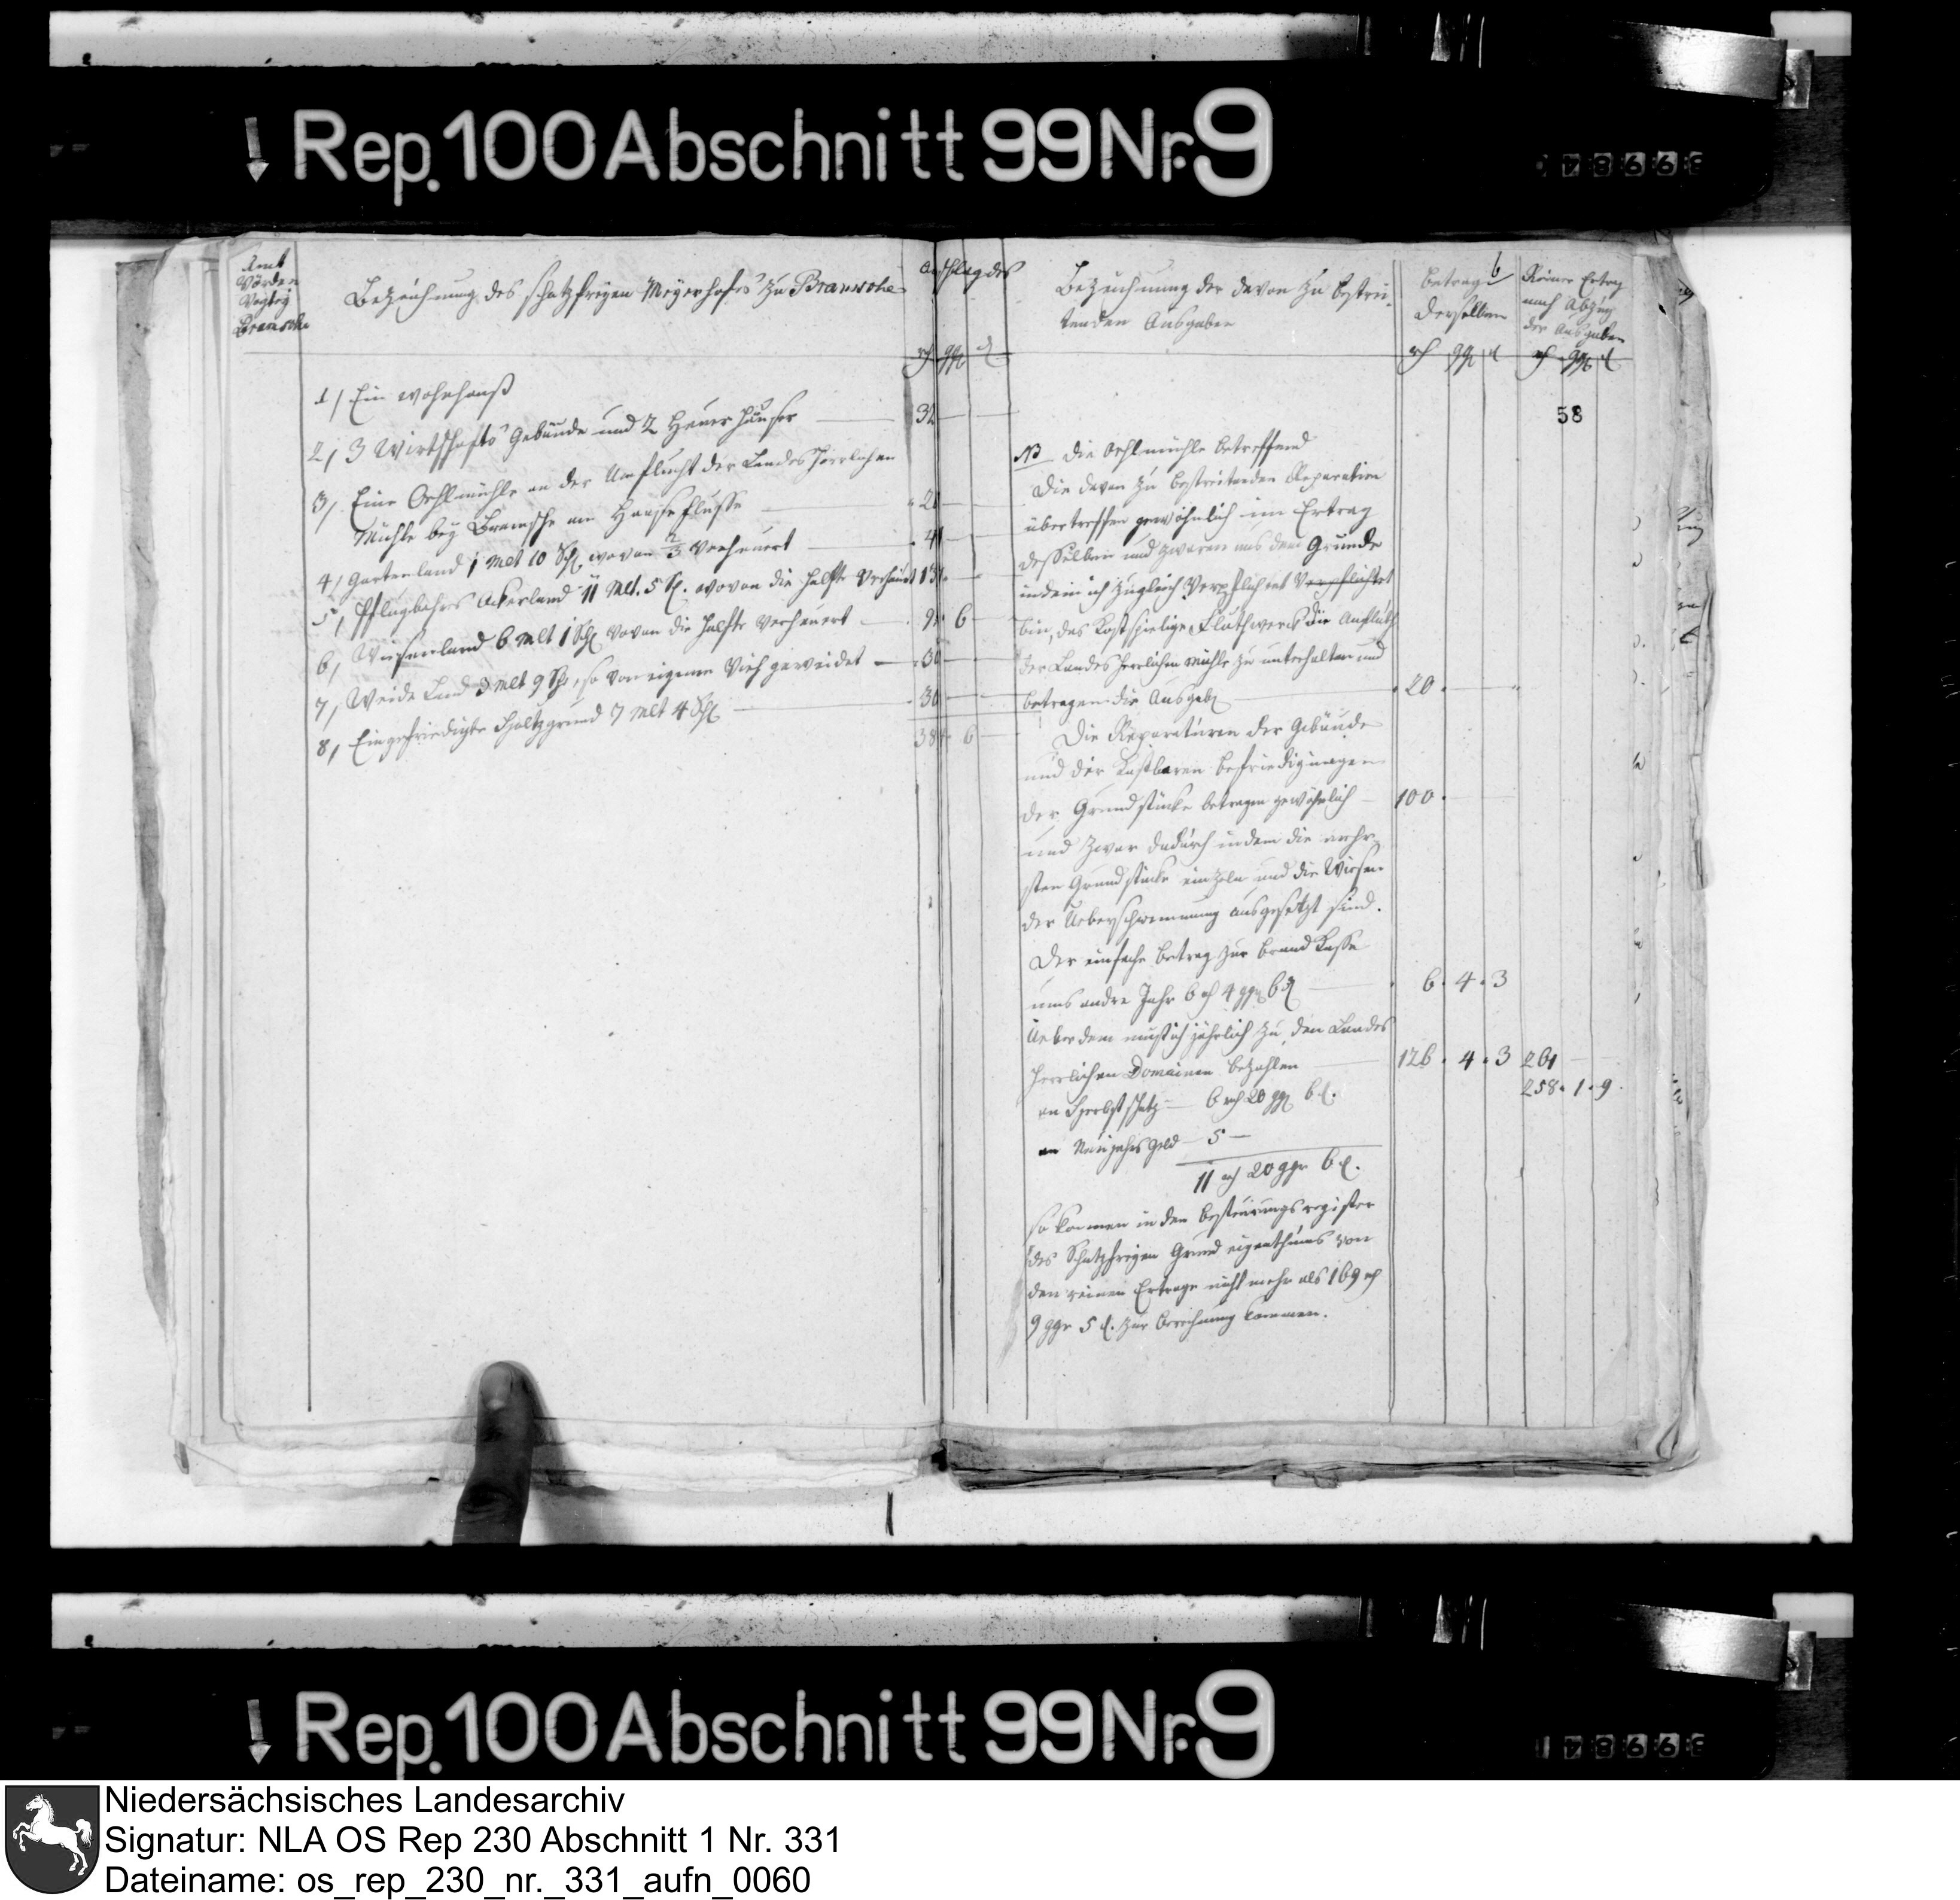 Rep. 100 Abschnitt 99 Nr. 9
Amt
Vörden
Vogtey
Bramsche
Bezeichnung des schatzfreyen Meyerhofes zu Bramsche
Anschlag des
rh ggr d
1) Ein Wohnhauß
2) 3 Wirtschafts Gebäude und 2 Heuer Häuser — 32
3) Eine Oehlmühle an der Umflucht der Landesherrlichen
Mühle bey Bramsche am Haase flusse — 20
4) Gartenland 1 Mlt 10 Schl wovon 2/3 verheuert
5) Pflugbahres Ackerland 11 Mlt. 5 S. wovon die Helfte verheuert
6) Wiesenland 6 Mlt 1 Schl wovon die Helfte verheuert — 6
7) Weide Land 3 Mlt 9 Schl, so von eigenem Vieh geweidet — 30
8) Eingefriedigte Holtzgrund 7 Mlt 4 Schl — 30
6
Bezeichnung der davon zu bestrei-
tenden Ausgaben
Betrag
derselben
rh ggr d
6
Reiner Ertrag
nach Abzug
der Ausgaben
rh ggr d
58
NB die Oehlmühle betreffend
Die davon zu bestreitenden Reparation
übertreffen gewöhnlich im Ertrag
desselben und zwaren aus dem Grunde
indem ich zugleich Verpflichtet Verpflichtet
bin, das Kostspielige Fluthwerk die Anfluth
der Landesherrlichen Mühle zu unterhalten und
betragen die Ausgab — 20
Die Reparaturen der Gebäude
und der Kostbaren Befriedigungen
der Grundstücke betragen gewöhnlich — 100
und zwar dadurch indem die mehr-
sten Grundstücke einzeln und die Wiesen
der Ueberschwemmung ausgesetzt sind.
Der einfache Betrag zur Brand Casse
ums andre Jahr 6 rh 4 ggr 6 d — 6. 4. 3
Ueberdem muß ich jährlich zu den Landes
herrlichen Domainen bezahlen — 126. 4. 3 261
258. 1. 9.
an Herbstschatz — 6 rh 20 ggr 6 d.
an Neujahrs Geld — 5 —
11 rh 20 ggr 6 d.
so kommen in den Besteurungs register
des Schatzfreyen Grund eigenthums von
den reinen Ertrage nicht mehr als 169 rh
9 ggr 5 d. zur Berechnung kommen.
Rep. 100 Abschnitt 99 Nr. 9
Niedersächsisches Landesarchiv
Signatur: NLA OS Rep 230 Abschnitt 1 Nr. 331
Dateiname: os_rep_230_nr._331_aufn_0060